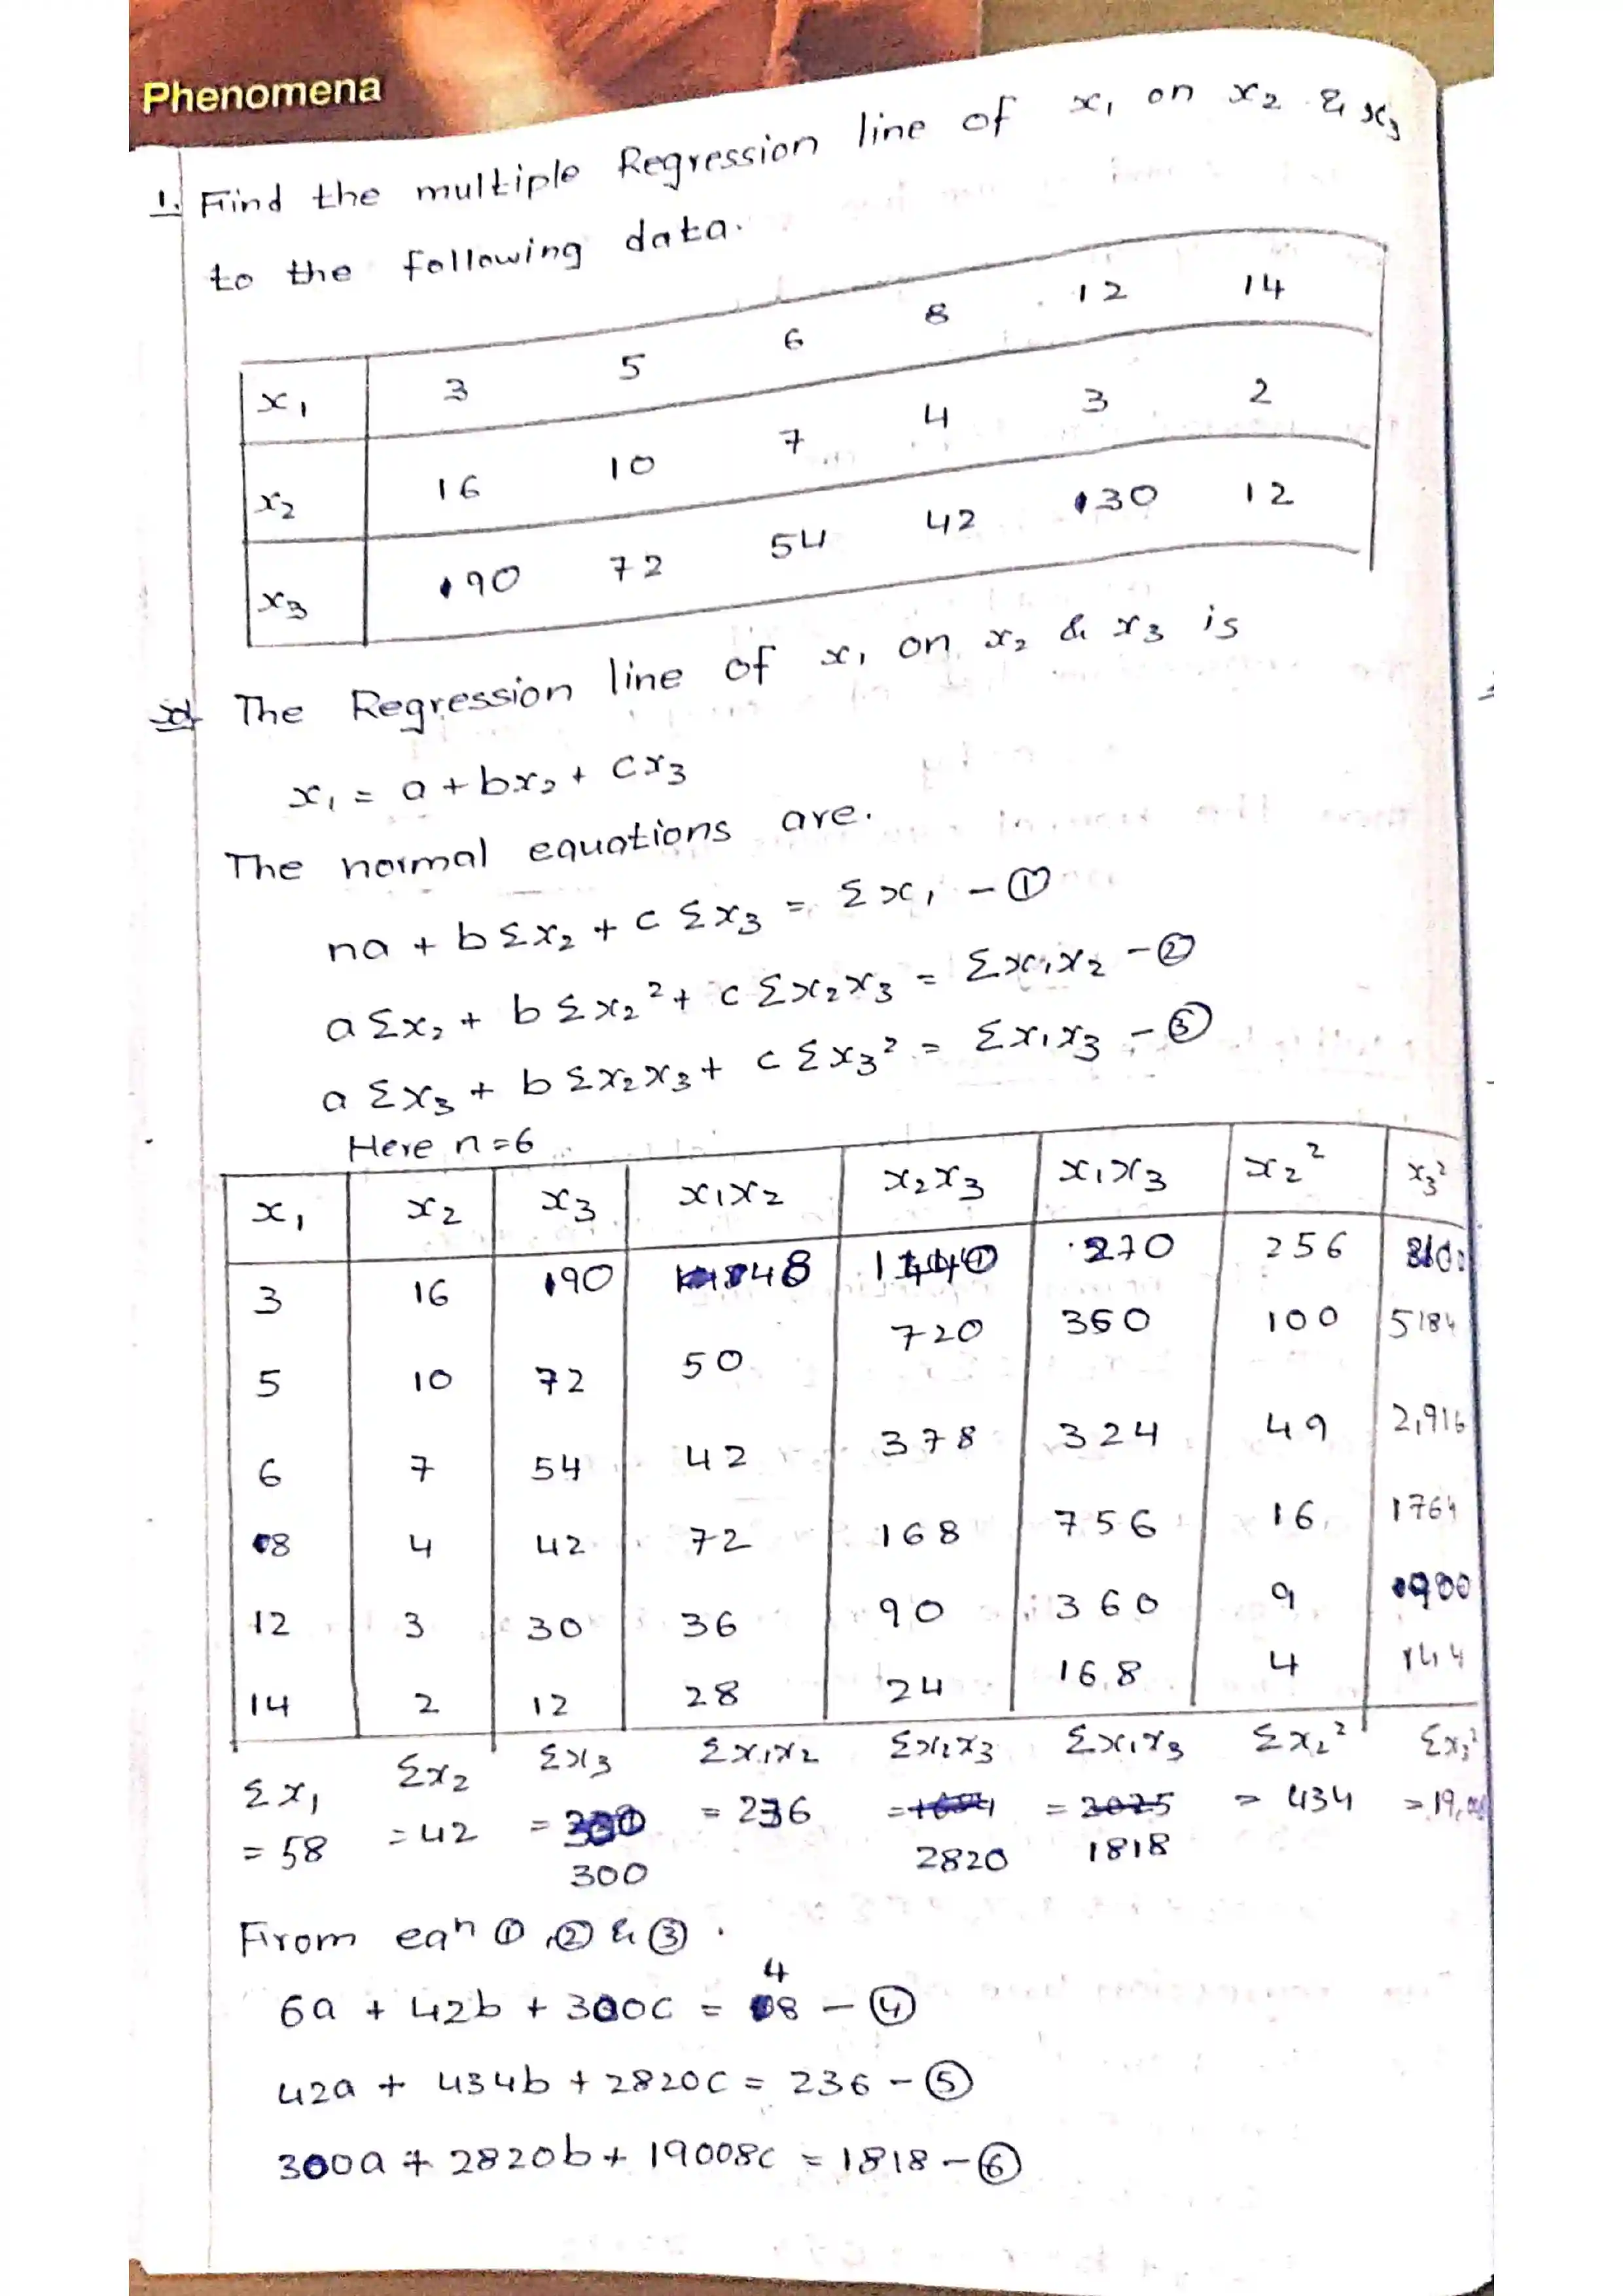 Phenomena
1. Find the multiple Regression line of x₁ on x₂ & x₃
to the following data.
x₁ 3 5 6 8 12 14
x₂ 16 10 7 4 3 2
x₃ 90 72 54 42 30 12
Sol The Regression line of x₁ on x₂ & x₃ is
x₁ = a + bx₂ + cx₃
The normal equations are.
na + bΣx₂ + cΣx₃ = Σx₁ - ①
aΣx₂ + bΣx₂² + cΣx₂x₃ = Σx₁x₂ - ②
aΣx₃ + bΣx₂x₃ + cΣx₃² = Σx₁x₃ - ③
Here n=6
x₁ x₂ x₃ x₁x₂ x₂x₃ x₁x₃ x₂² x₃²
3 16 90 48 1440 270 256 8100
5 10 72 50 720 360 100 5184
6 7 54 42 378 324 49 2,916
8 4 42 72 168 756 16 1764
12 3 30 36 90 360 9 900
14 2 12 28 24 168 4 144
Σx₁ Σx₂ Σx₃ Σx₁x₂ Σx₂x₃ Σx₁x₃ Σx₂² Σx₃²
= 58 = 42 = 300 = 236 = 2820 = 2025 1818 = 434 = 19,
From eqn ①, ② & ③.
6a + 42b + 300c = 48 - ④
42a + 434b + 2820c = 236 - ⑤
300a + 2820b + 19008c = 1818 - ⑥